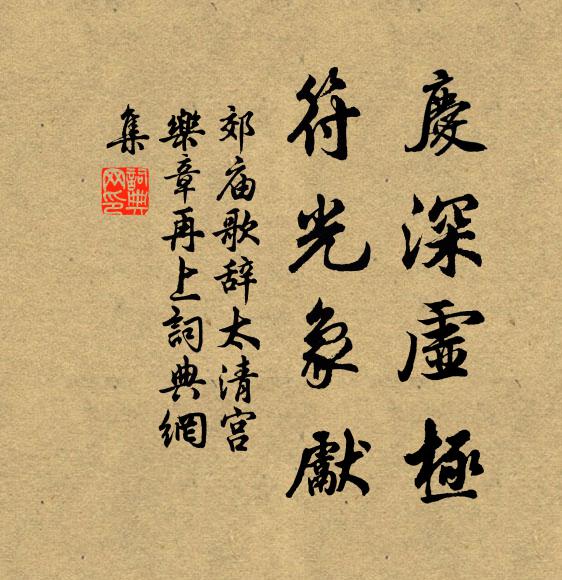 慶深虛極
符光象獻
郊庙歌辞太清宫
樂章再上詞典網
集
詞典网印